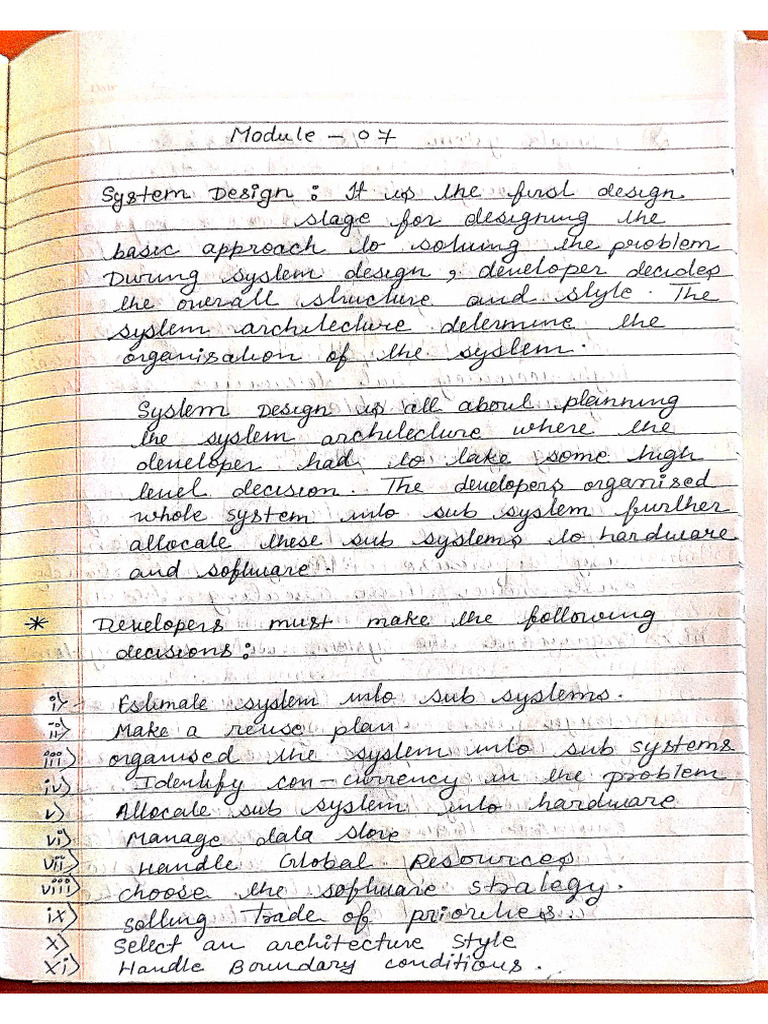 Module - 07
System Design : It is the first design
stage for designing the
basic approach to solving the problem
During system design, developer decides
the overall structure and style. The
system architecture determine the
organisation of the system.
System Design is all about planning
the system architecture where the
developer had to take some high
level decision. The developers organised
whole system into sub system further
allocate these sub systems to hardware
and software.
* Developers must make the following
decisions :
i) Estimate system into sub systems.
ii) Make a reuse plan
iii) organised the system into sub systems
iv) Identify con-currency in the problem
v) Allocate sub system into hardware
vi) Manage data store
vii) Handle Global Resources
viii) choose the software strategy.
ix) Setting Trade of priorities.
x) Select an architecture style
xi) Handle Boundary conditions.